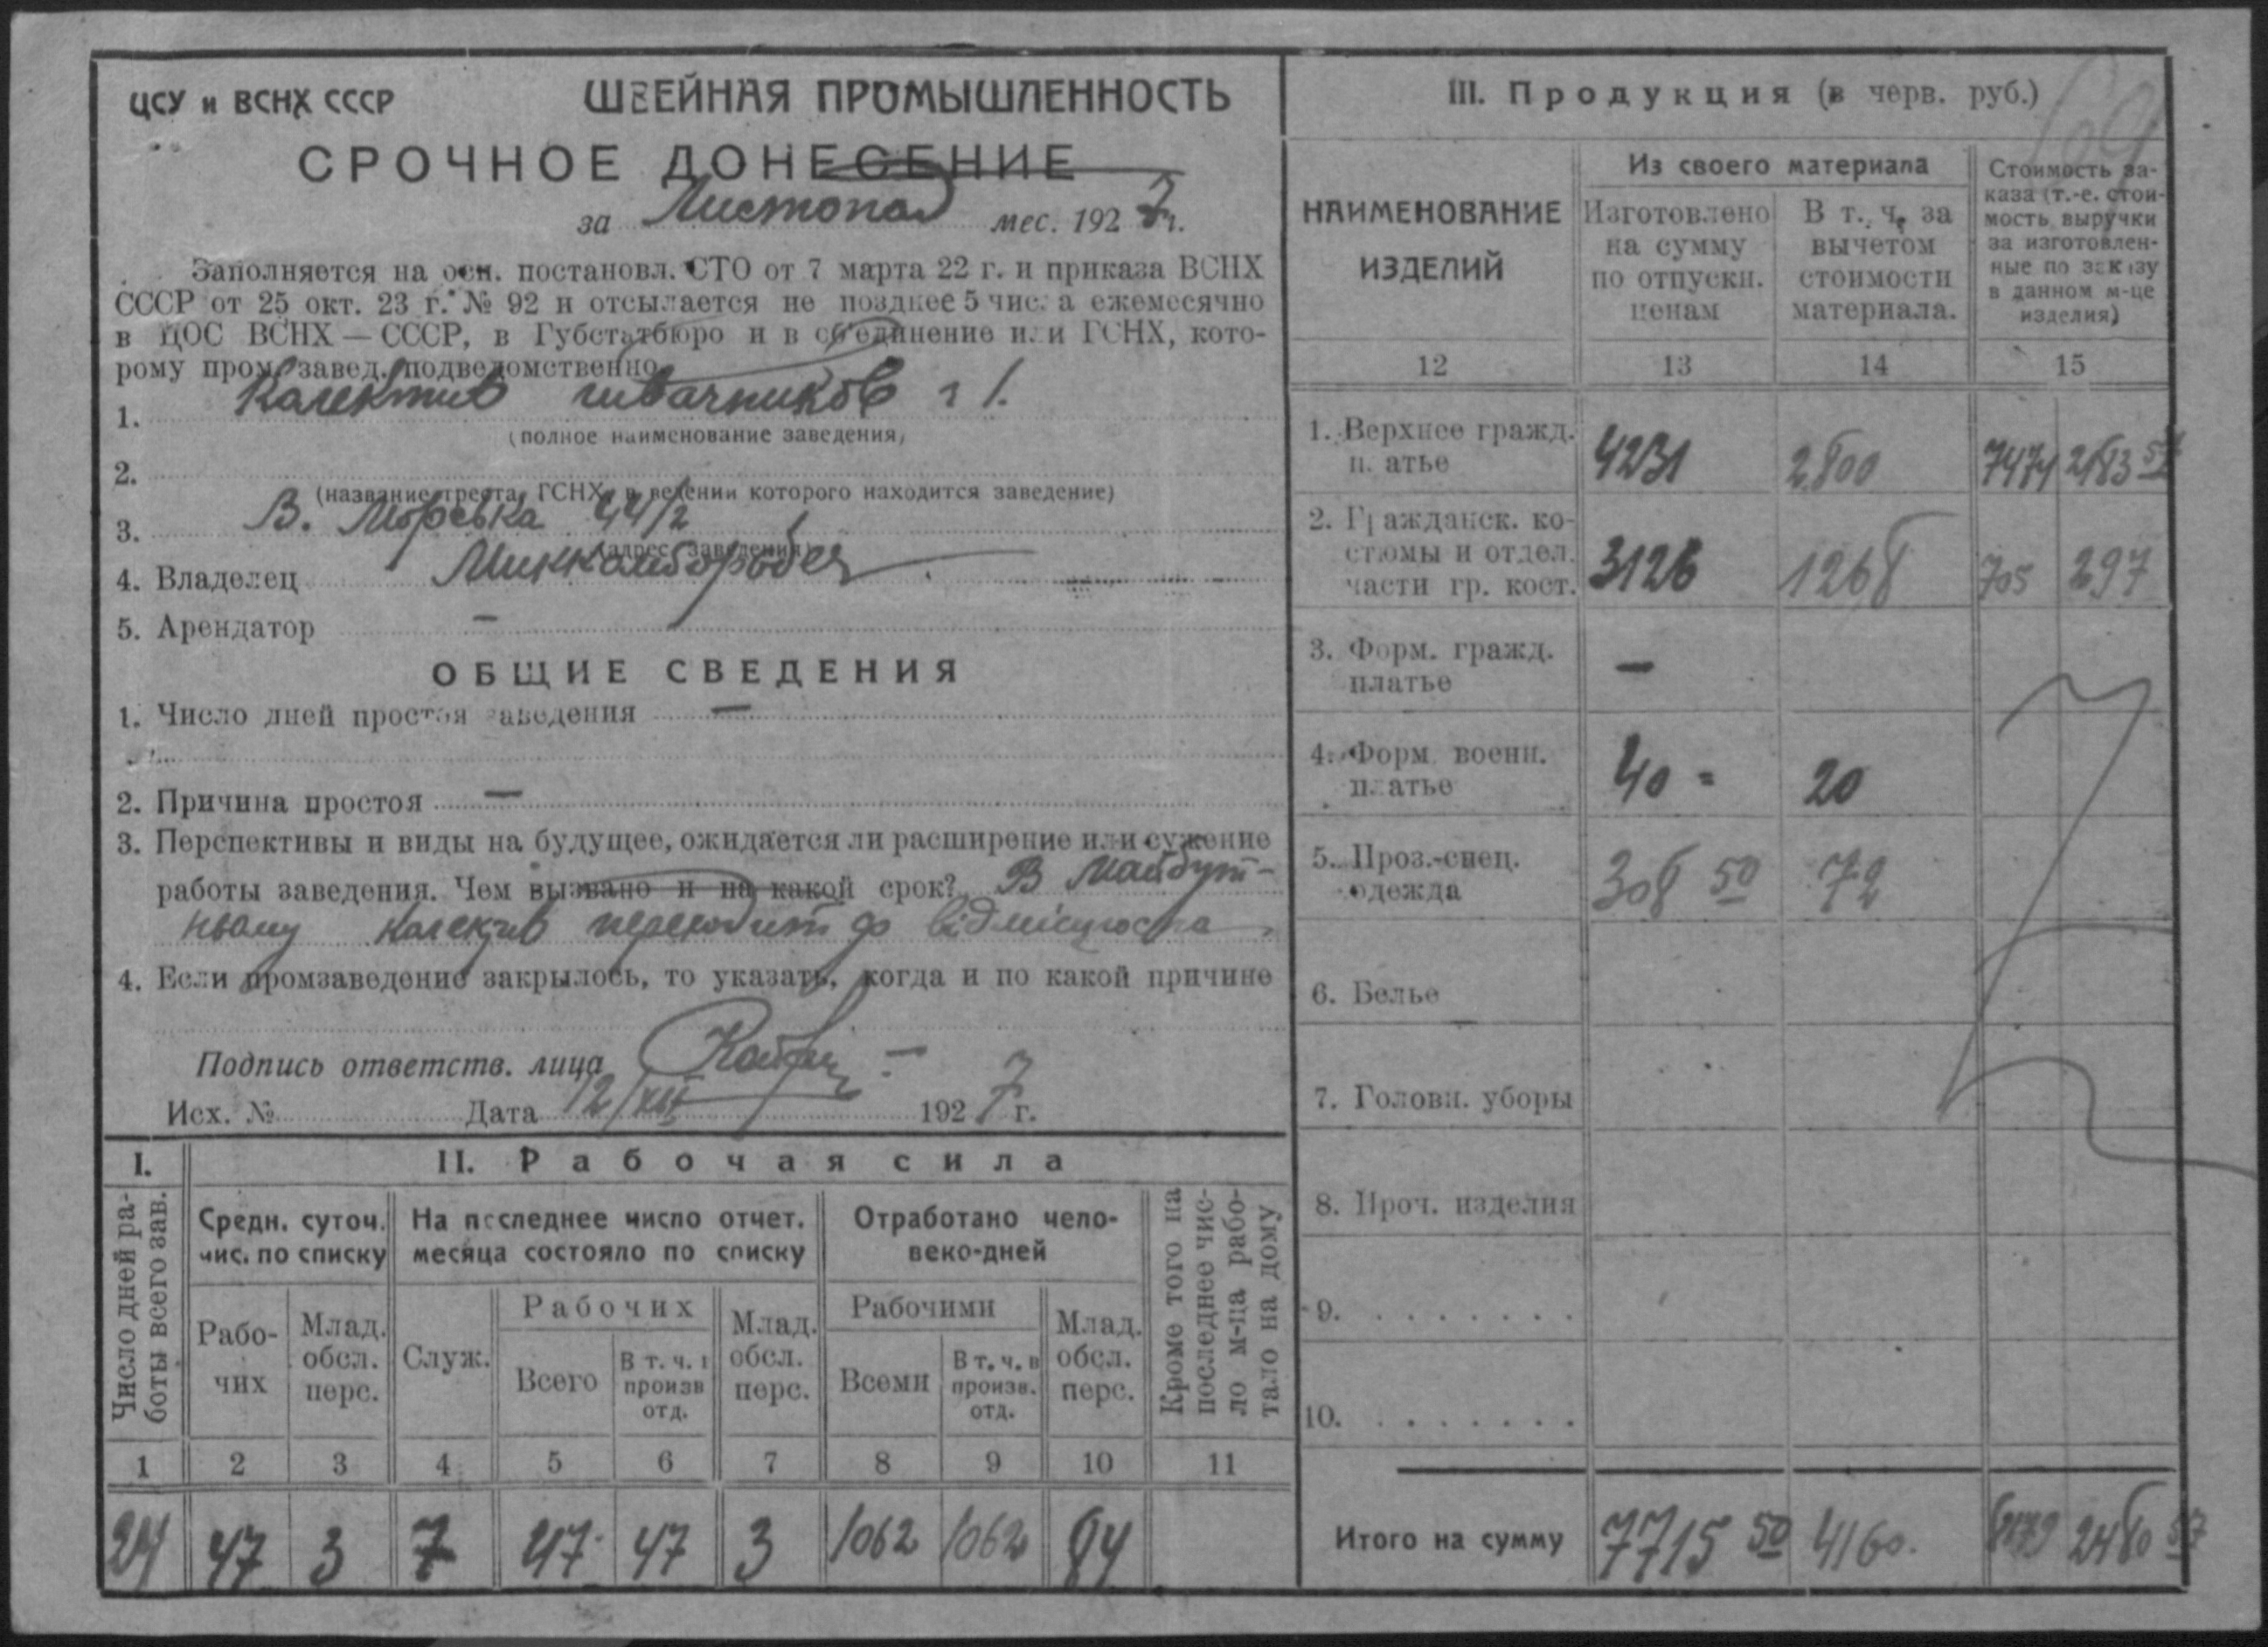 ЦСУ и ВСНХ СССР
ШВЕЙНАЯ ПРОМЫШЛЕННОСТЬ
СРОЧНОЕ ДОНЕСЕНИЕ
за Листопад мес. 1927 г.
Заполняется на осн. постановл. СТО от 7 марта 22 г. и приказа ВСНХ
СССР от 25 окт. 23 г. № 92 и отсылается не позднее 5 числа ежемесячно
в ЦОС ВСНХ — СССР, в Губстатбюро и в объединение или ГСНХ, кото-
рому пром. завед. подведомственно
1. Колектив швачників ч 1.
(полное наименование заведения)
2.
(название треста, ГСНХ, в ведении которого находится заведение)
3. В. Морська 44/2
(адрес заведения)
4. Владелец
5. Арендатор —
ОБЩИЕ СВЕДЕНИЯ
1. Число дней простоя заведения —
2. Причина простоя —
3. Перспективы и виды на будущее, ожидается ли расширение или сужение
работы заведения. Чем вызвано и на какой срок? В майбут-
ньому колектив переходит до
4. Если промзаведение закрылось, то указать, когда и по какой причине
Подпись ответств. лица
Исх. № Дата 12/XII 1927 г.
I.
Число дней ра-
боты всего зав.
II. Рабочая сила
Средн. суточ.
чис. по списку
На последнее число отчет.
месяца состояло по списку
Отработано чело-
веко-дней
Кроме того на
последнее чис-
ло м-ца рабо-
тало на дому
Рабо-
чих
Млад.
обсл.
перс.
Служ.
Рабочих
Всего
В т. ч. в
произв
отд.
Млад.
обсл.
перс.
Рабочими
Всеми
В т. ч. в
произв.
отд.
Млад.
обсл.
перс.
1 2 3 4 5 6 7 8 9 10 11
24 47 3 7 47 47 3 1062 1062 84
III. Продукция (в черв. руб.)
НАИМЕНОВАНИЕ
ИЗДЕЛИЙ
Из своего материала
Изготовлено
на сумму
по отпускн.
ценам
В т. ч. за
вычетом
стоимости
материала.
Стоимость за-
каза (т.-е. стои-
мость выручки
за изготовлен-
ные по заказу
в данном м-це
изделия)
12 13 14 15
1. Верхнее гражд.
платье 4231 2800 7474 2183 57
2. Гражданск. ко-
стюмы и отдел.
части гр. кост. 3126 1268 705 297
3. Форм. гражд.
платье —
4. Форм. военн.
платье 40 = 20
5. Проз.-спец.
одежда 308 50 72
6. Белье
7. Головн. уборы
8. Проч. изделия
9. . . . . . . .
10. . . . . . . .
Итого на сумму 7715 50 4160. 8179 2480 57